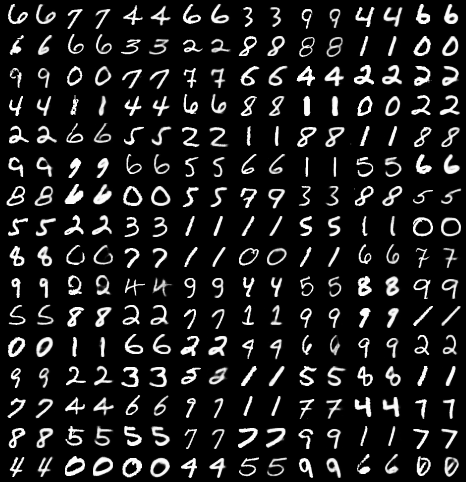 6 6 7 7 4 4 6 6 3 3 9 9 4 4 6 6
6 6 6 6 3 3 2 2 8 8 8 8 1 1 0 0
9 9 0 0 7 7 7 7 6 6 4 4 2 2 2 2
4 4 1 1 4 4 6 6 8 8 1 1 0 0 2 2
2 2 6 6 5 5 2 2 1 1 8 8 1 1 8 8
9 9 9 9 6 6 5 5 6 6 1 1 5 5 6 6
8 8 6 6 0 0 5 5 7 9 3 3 8 8 5 5
5 5 2 2 3 3 1 1 1 1 5 5 1 1 0 0
8 8 0 0 7 7 1 1 0 0 1 1 6 6 7 7
9 9 2 2 4 4 9 9 4 4 5 5 8 8 9 9
5 5 8 8 2 2 7 7 1 1 9 9 9 9 1 1
0 0 1 1 6 6 2 2 4 4 6 6 9 9 2 2
9 9 2 2 3 3 1 1 5 5 8 8 1 1
7 7 4 4 6 6 9 7 1 1 7 7 4 4 7 7
8 8 5 5 5 5 7 7 7 7 9 9 1 1 7 7
4 4 0 0 0 0 4 4 5 5 9 9 6 6 0 0